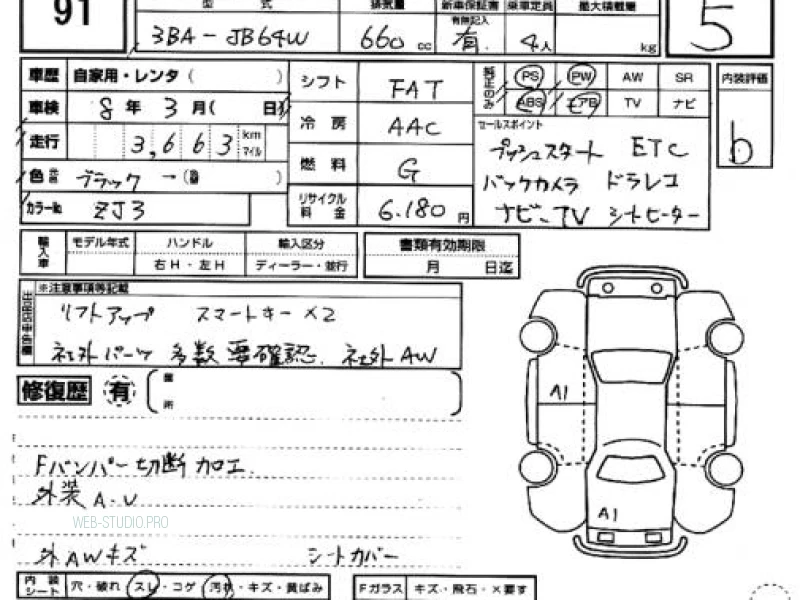 91 型 式 排気量 新車保証書 乗車定員 最大積載量 5
有無記入
3BA-JB64W 660 cc 有. 4人 kg
車歴 自家用・レンタ( ) シフト FAT 純正のみ PS PW AW SR 内装評価
車検 8年 3月( 日) 冷房 AAC ABS エアB TV ナビ
走行 3,663 km マイル セールスポイント b
プッシュスタート ETC
色 ブラック →( ) 燃料 G バックカメラ ドラレコ
カラーNo. ZJ3 リサイクル料金 6.180円 ナビ・TV シートヒーター
輸入車 モデル年式 ハンドル 輸入区分 書類有効期限
右H・左H ディーラー・並行 月 日迄
※注意事項等記載
出品店申告欄 リフトアップ スマートキー×2
社外パーツ多数要確認. 社外AW
修復歴 有 箇所
A1
Fバンパー切断加工.
外装A・U
A1
WEB-STUDIO.PRO
外AWキズ シートカバー
内装シート 穴・破れ スレ・コゲ 汚れ・キズ・黄ばみ Fガラス キズ・飛石・×要す